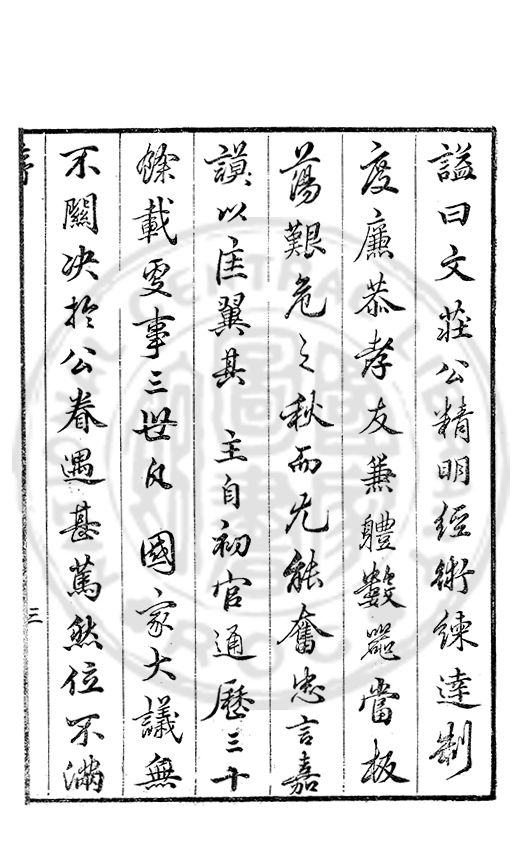 謚曰文莊公精明經術練達制
度廉恭孝友兼體數器當板
蕩艱危之秋而尤能奮忠言嘉
謨以匡翼其　主自初官通歷三十
餘載更事三世凡　國家大議無
不關决扵公眷遇甚篤然位不滿
三